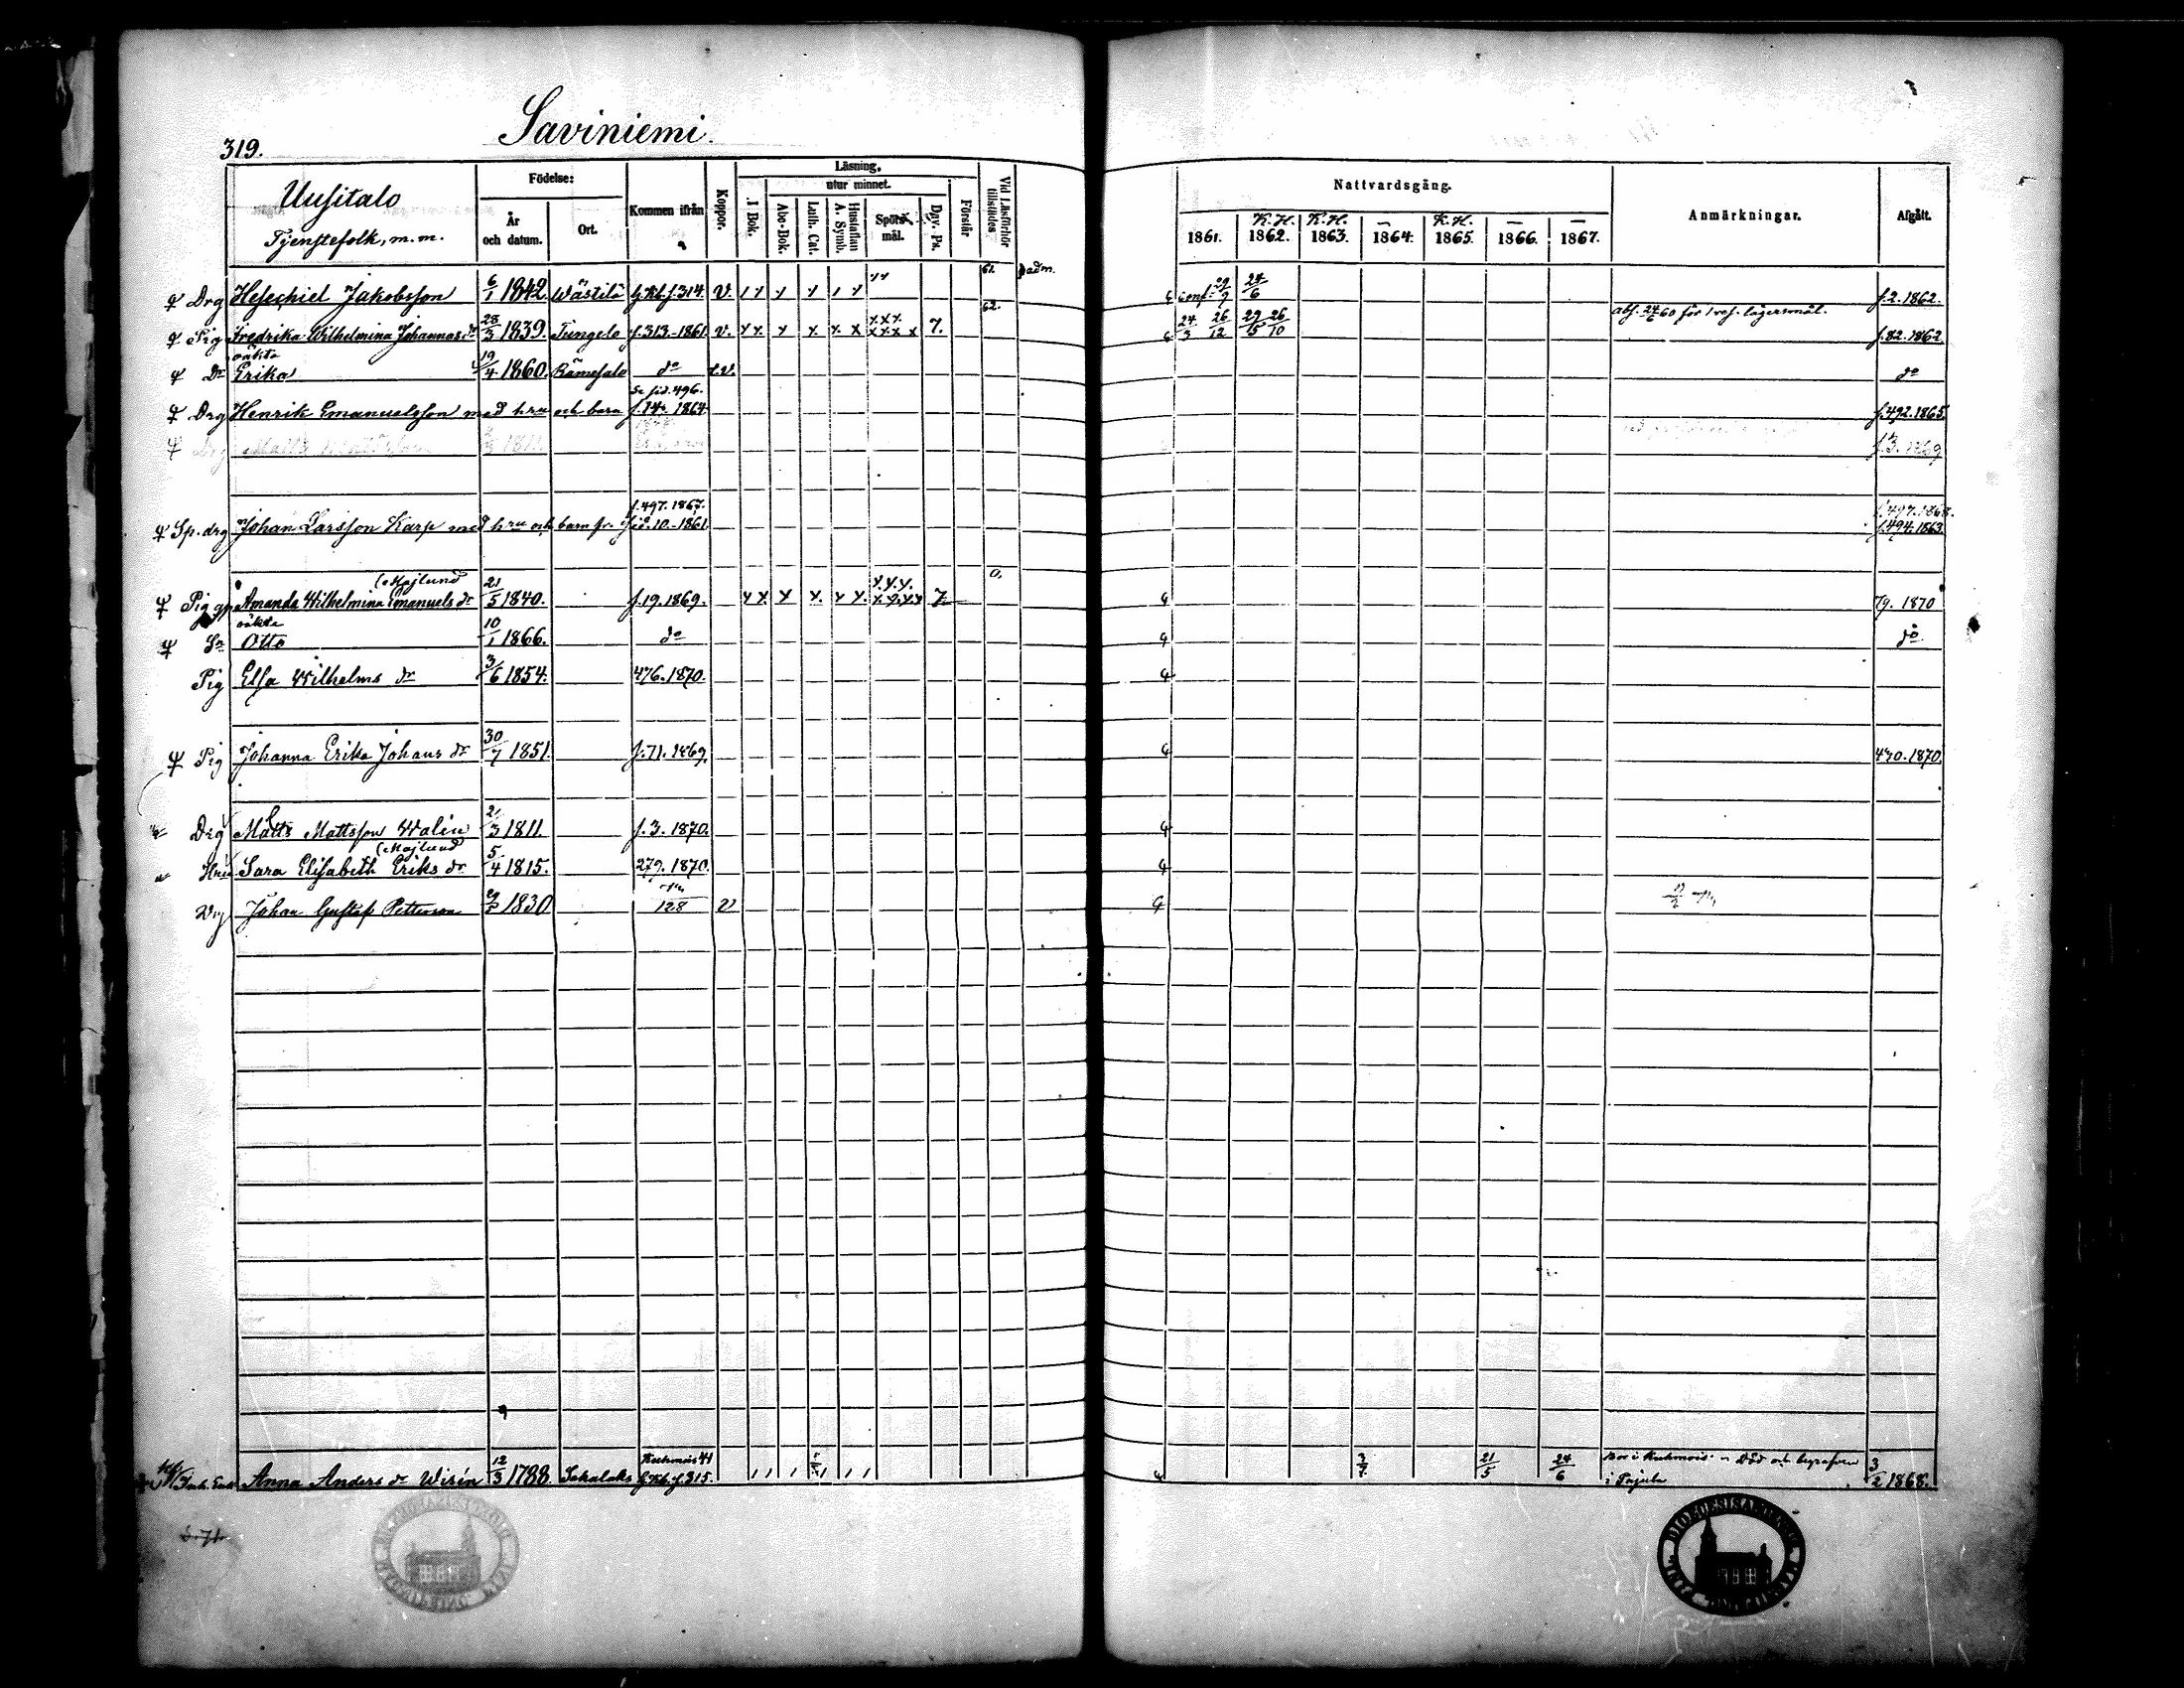 319.
Saviniemi.
Uusitalo
Tjenstefolk, m.m.
Födelse:
År och datum.
Ort.
Kommen ifrån
Koppor.
Läsning,
utur minnet.
I Bok.
Abc-Bok.
Luth. Cat.
Hustaflan A. Symb.
Spörsmål.
Dav. Ps.
Förstår
Vid Läsförhör tillstädes
Nattvardsgång.
1861.
K.H. 1862.
K.H. 1863.
— 1864.
K.H. 1865.
— 1866.
— 1867.
Anmärkningar.
Afgått.
Drg Hesechiel Jakobsson 6/1 1842. Wästilä G.Kb.f.314. V. 61. adm. conf. 29/9 24/6 f.2.1862.
Pig Fredrika Wilhelmina Johannas dr 28/3 1839. Tungelo f.313.-1861. v. 7. 62. 24/3 26/12 29/5 26/10 abs. 24/6 60 för 1 res. lägersmål. f.82.1862.
oäkta
Dr Erika 19/4 1860. Rämesalo do v.v. do
Se sid. 496.
Drg Henrik Emanuelsson med hru och barn f.14. 1864. f.492.1865.
Drg Matts 1811. f.3.1869
f.497.1867. f.497.1868.
Sp. drg Johan Larsson Karp med hru och barn fr. sid.10.-1861. f.494.1863.
(Majlund
Pig Amanda Wilhelmina Emanuels dr 21/5 1840. f.19.1869. 7. 0. 79. 1870
oäkta
Sn Otto 10/1 1866. do do
Pig Elsa Wilhelms dr 3/6 1854. 476.1870.
Pig Johanna Erika Johans dr 30/7 1851. f.71.1869. 470.1870.
Drg Matts Mattsson Walin 21/3 1811 f.3.1870.
(Majlund
Hru Sara Elisabeth Eriks dr 5/4 1815. 279.1870.
Drg Johan Gustaf Petterson 1830 128 v
Anna Anders dr Wirén 12/3 1788. Sahalaks Kuhmois 41 G.Kb.f.315. 3/7 21/5 24/6 Bor i Kuhmois Död och begrafven i Pajula 3/2 1868.
S. 71.